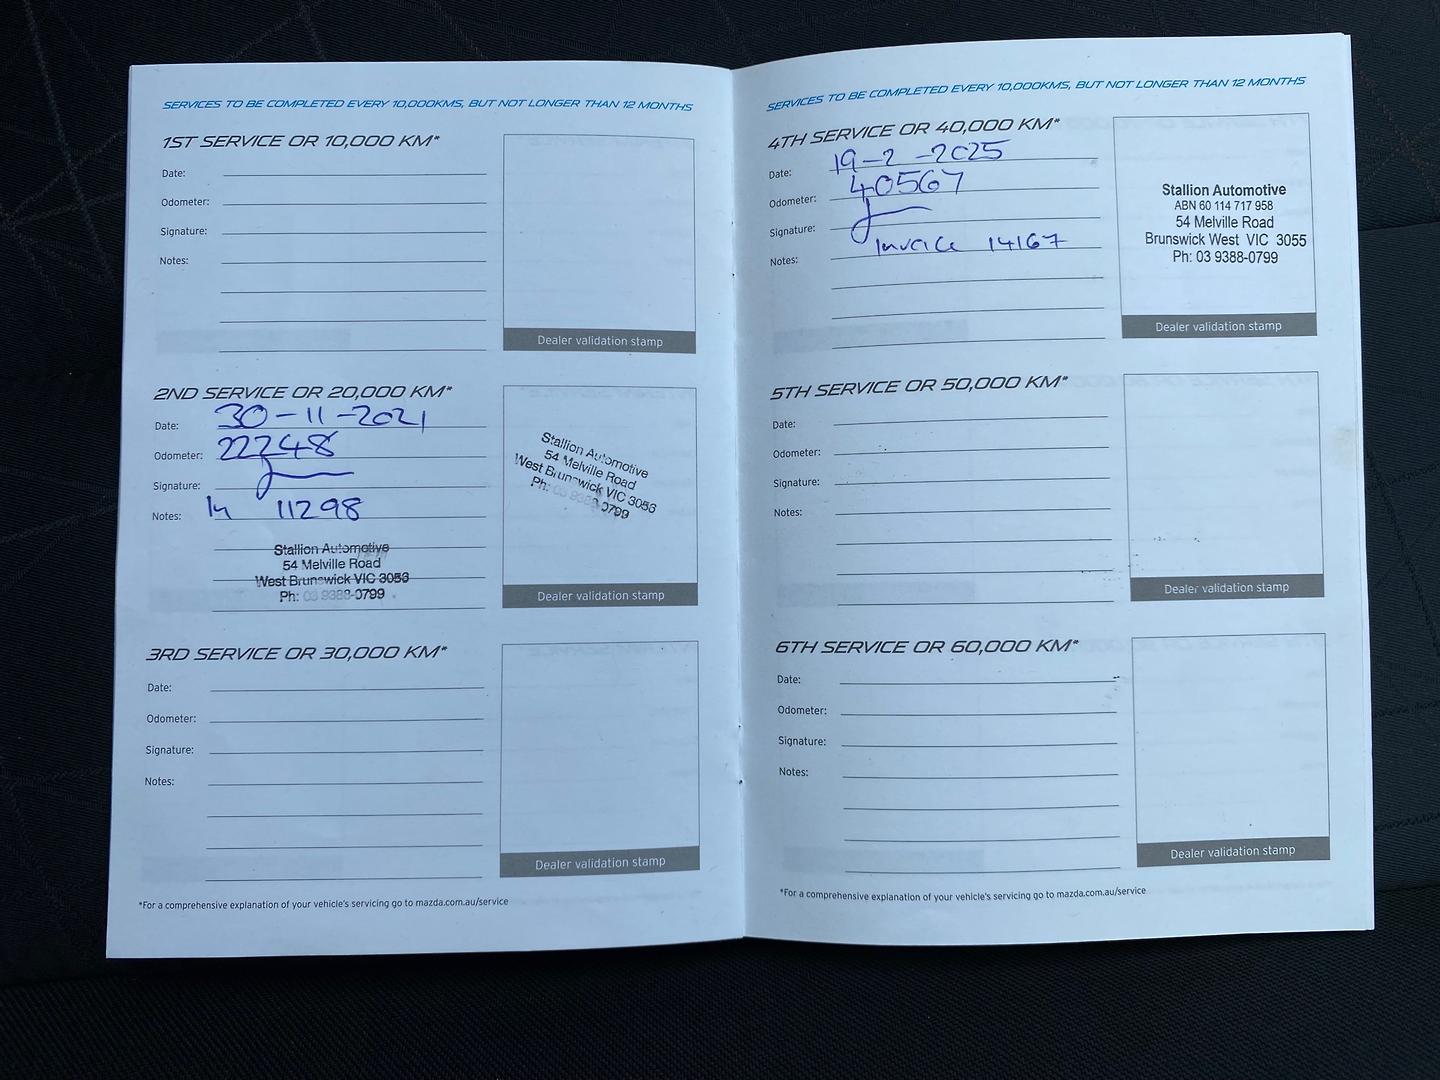 SERVICES TO BE COMPLETED EVERY 10,000KMS, BUT NOT LONGER THAN 12 MONTHS
1ST SERVICE OR 10,000 KM*
Date:
Odometer:
Signature:
Notes:
Dealer validation stamp
2ND SERVICE OR 20,000 KM*
Date: 30-11-2021
Odometer: 22248
Signature:
Notes: In 11298
Stallion Automotive
54 Melville Road
West Brunswick VIC 3056
Ph: 03 9388-0799
Stallion Automotive
54 Melville Road
West Brunswick VIC 3056
Ph: 03 9388-0799
Dealer validation stamp
3RD SERVICE OR 30,000 KM*
Date:
Odometer:
Signature:
Notes:
Dealer validation stamp
*For a comprehensive explanation of your vehicle's servicing go to mazda.com.au/service
SERVICES TO BE COMPLETED EVERY 10,000KMS, BUT NOT LONGER THAN 12 MONTHS
4TH SERVICE OR 40,000 KM*
Date: 19-2-2025
Odometer: 40567
Signature:
Notes: Invoice 14167
Stallion Automotive
ABN 60 114 717 958
54 Melville Road
Brunswick West VIC 3055
Ph: 03 9388-0799
Dealer validation stamp
5TH SERVICE OR 50,000 KM*
Date:
Odometer:
Signature:
Notes:
Dealer validation stamp
6TH SERVICE OR 60,000 KM*
Date:
Odometer:
Signature:
Notes:
Dealer validation stamp
*For a comprehensive explanation of your vehicle's servicing go to mazda.com.au/service